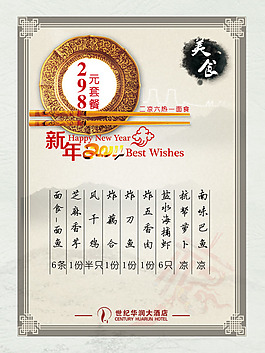 美食
298
元套餐
二凉六热一面食
新年
Happy New Year
2011
Best Wishes
南味巴鱼 凉
杭帮萝卜 凉
盐水海捕虾 6只
炸五香肉 1份
炸刀鱼 1份
炸藕合 1份
风干鸡 半只
芝麻香芋 1份
面食-面鱼 6条
世纪华润大酒店
CENTURY HUARUN HOTEL